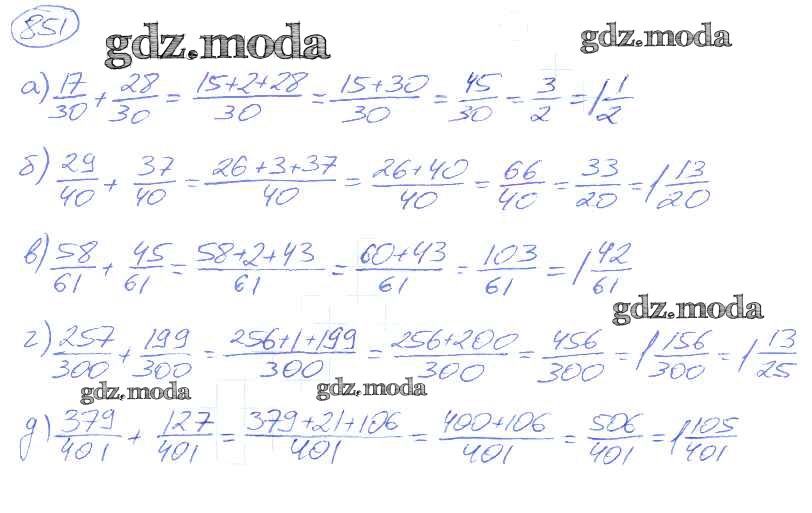 851 gdz.moda gdz.moda
а) 17/30 + 28/30 = (15+2+28)/30 = (15+30)/30 = 45/30 = 3/2 = 1 1/2
б) 29/40 + 37/40 = (26+3+37)/40 = (26+40)/40 = 66/40 = 33/20 = 1 13/20
в) 58/61 + 45/61 = (58+2+43)/61 = (60+43)/61 = 103/61 = 1 42/61
gdz.moda
г) 257/300 + 199/300 = (256+1+199)/300 = (256+200)/300 = 456/300 = 1 156/300 = 1 13/25
gdz.moda gdz.moda
д) 379/401 + 127/401 = (379+21+106)/401 = (400+106)/401 = 506/401 = 1 105/401